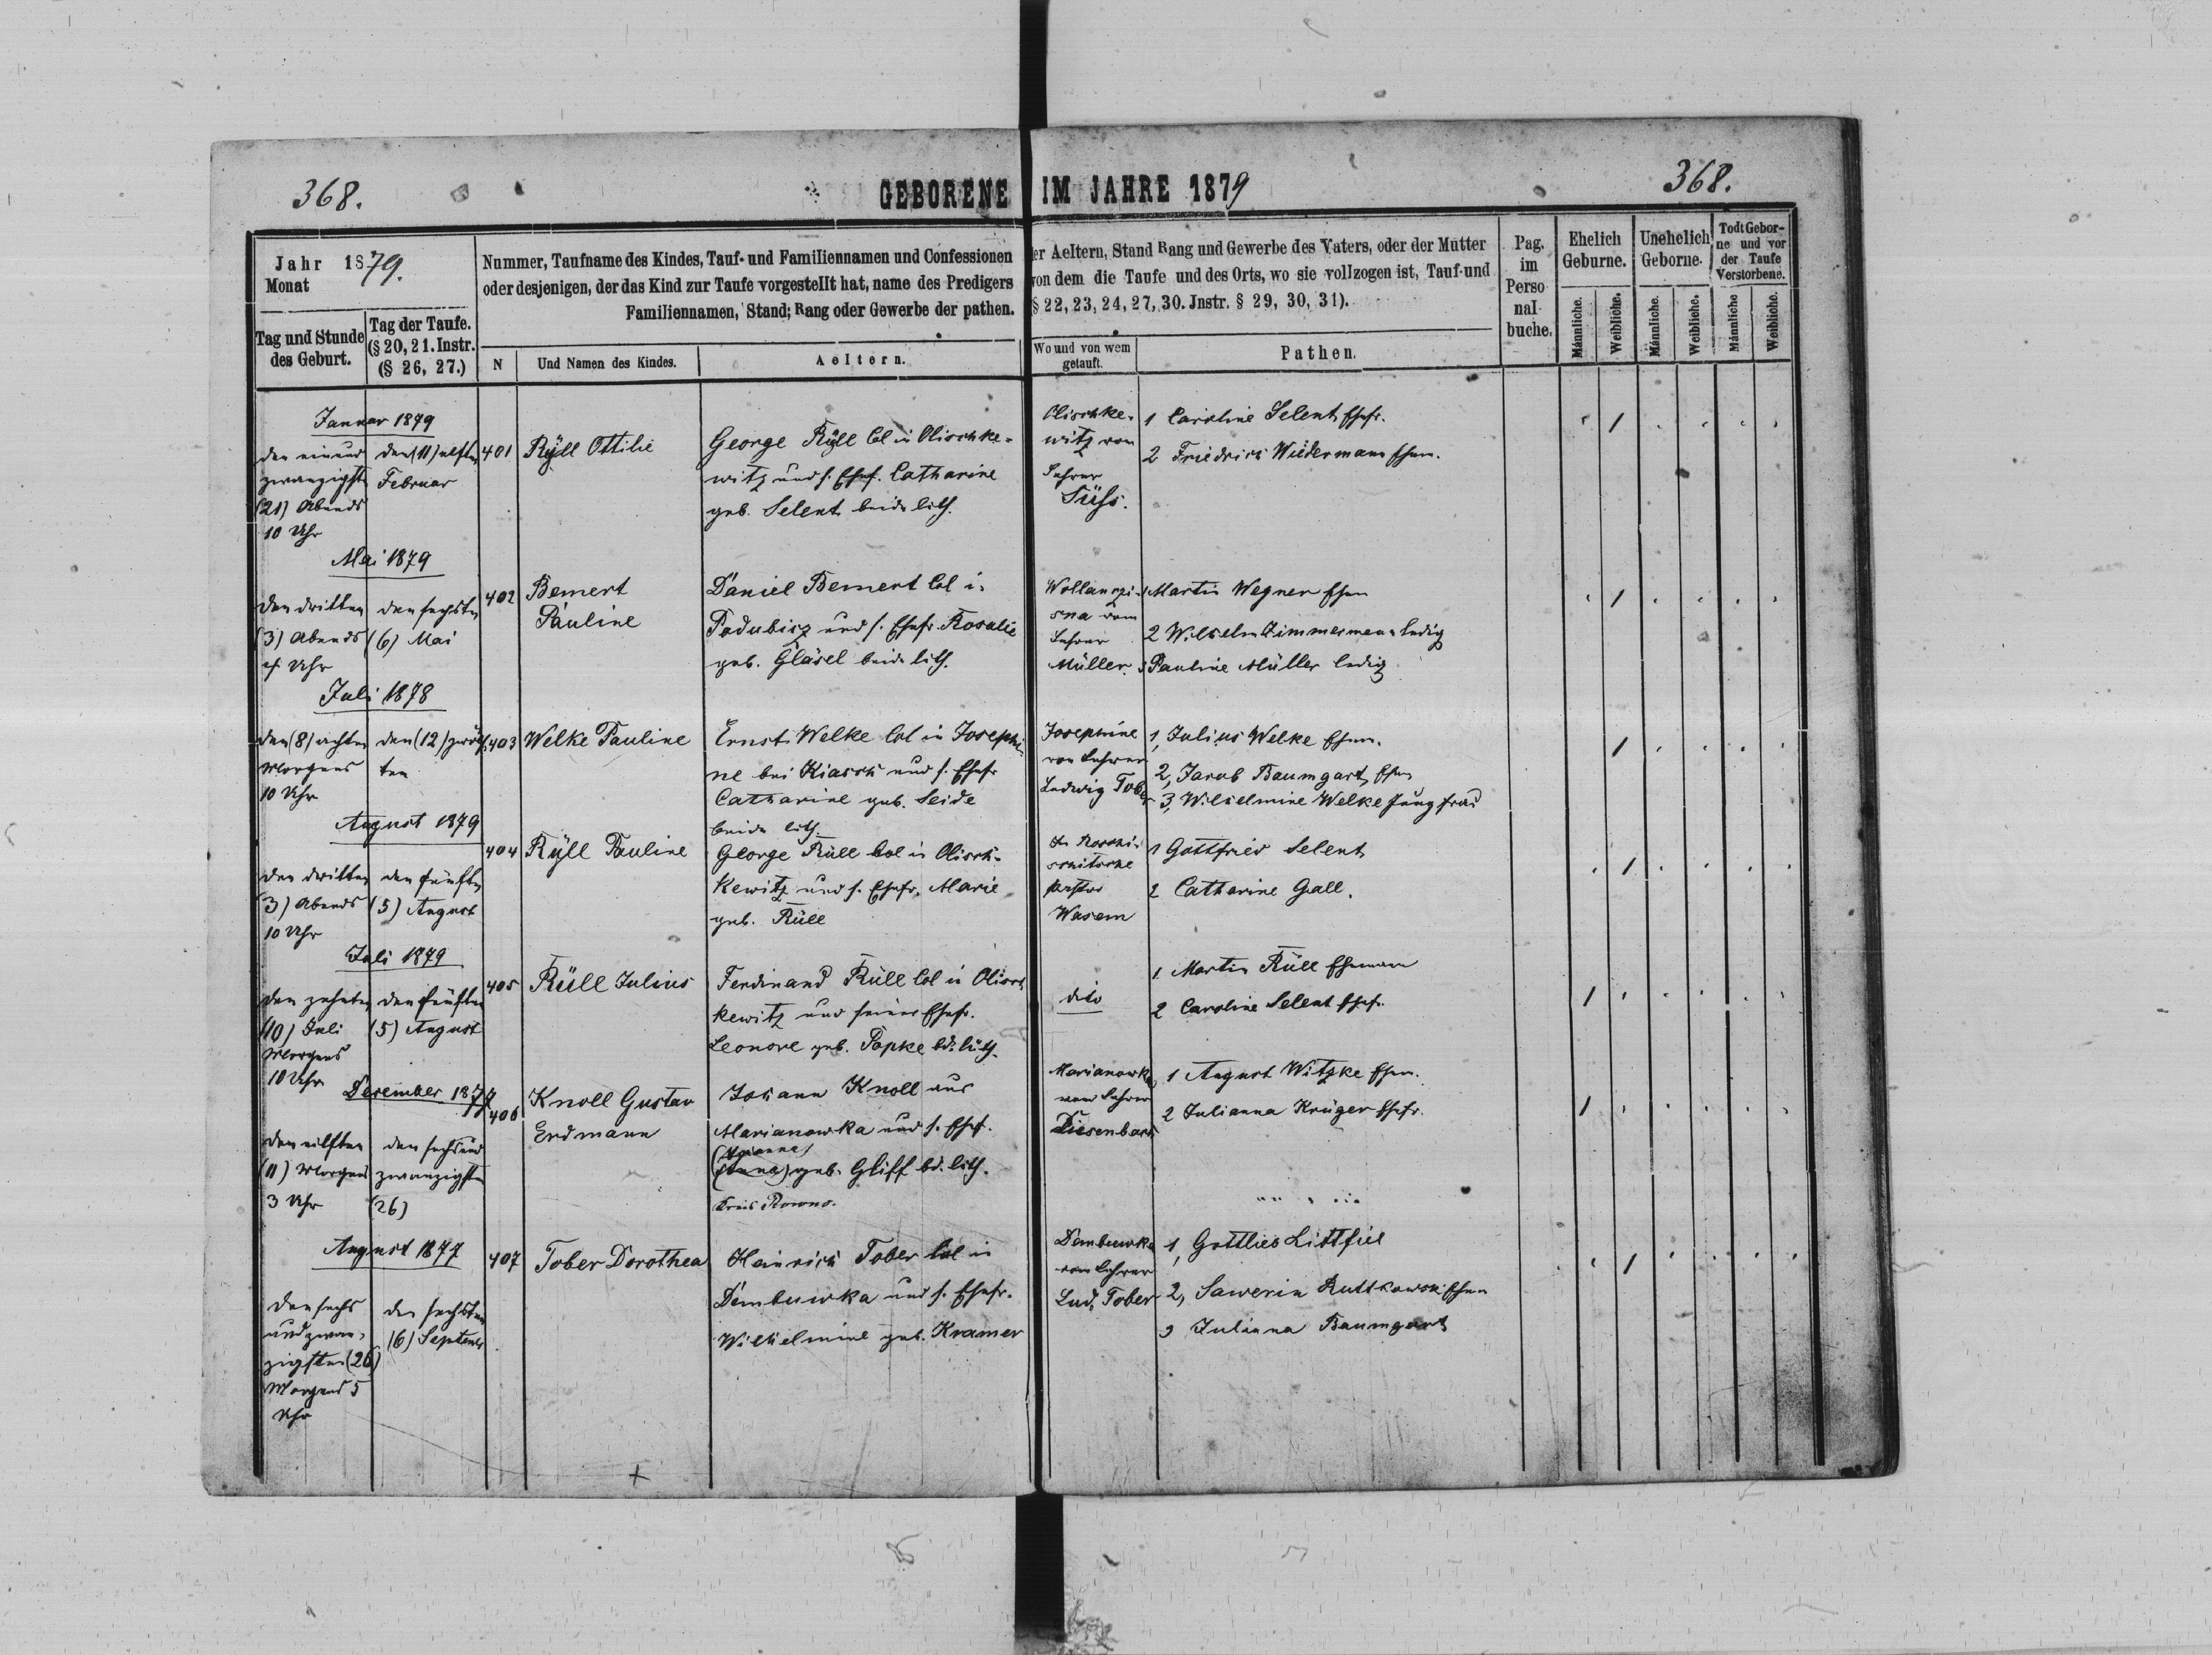 368.
GEBORENE IM JAHRE 1879
368.
Jahr 1879.
Monat
Tag und Stunde
des Geburt.
Tag der Taufe.
(§ 20, 21. Instr.
(§ 26, 27.)
Nummer, Taufname des Kindes, Tauf- und Familiennamen und Confessionen
oder desjenigen, der das Kind zur Taufe vorgestellt hat, name des Predigers
Familiennamen, Stand; Rang oder Gewerbe der pathen.
N
Und Namen des Kindes.
Aeltern.
er Aeltern, Stand Rang und Gewerbe des Vaters, oder der Mutter
von dem die Taufe und des Orts, wo sie vollzogen ist, Tauf-und
§ 22, 23, 24, 27, 30. Jnstr. § 29, 30, 31).
Wo und von wem
getauft.
Pathen.
Pag.
im
Perso
nal-
buche.
Ehelich
Geburne.
Unehelich
Geborne.
Todt Gebor-
ne und vor
der Taufe
Verstorbene.
Männliche.
Weibliche.
Männliche.
Weibliche.
Männliche
Weibliche.
Januar 1879
den einund
zwanzigst
(21) Abends
10 Uhr
den (11) elften
Februar
401
Ryll Ottilie
George Ryll Col in Olischke-
witz und s. Ehef. Catharine
geb. Selent beide luth.
Olischke-
witz von
Lehrer
Süss.
1 Caroline Selent Ehefr.
2 Friedrich Wiedermann Ehem.
Mai 1879
den dritten
(3) Abends
Uhr
den sechsten
(6) Mai
402
Bemert
Pauline
Daniel Bemert Col i.
Padubisz und s. Ehefr. Rosalie
geb. Gläsel beide luth.
sna vom
Lehrer
Müller.
1 Martin Wegner Ehem
2 Wilhelm Zimmermann ledig
3 Pauline Müller ledig
Juli 1878
den (8) achten
Morgens
10 Uhr
den (12) zwölf
ten
403
Welke Pauline
Ernst Welke Col in Josephi-
ne bei Kiasck und s. Ehefr
Catharine geb. Seide
beide luth.
Josephine
von Lehrer
Ludwig Tober
1, Julius Welke Ehem.
2, Jacob Baumgart, Ehem
3, Wilhelmine Welke Jungfrau
August 1879
den dritten
(3) Abends
10 Uhr
den fünften
(5) August
404
Ryll Pauline
George Rüll Col in Olisch-
kewitz und s. Ehefr. Marie
geb. Rüll
Pastor
Wasem
1 Gottfried Selent
2 Catharine Gall.
Juli 1879
den zehnten
(10) Juli
Morgens
10 Uhr
den fünften
(5) August
405
Rüll Julius
Ferdinand Rüll Col in Olisch
kewitz und seiner Ehefr.
Leonore geb. Papke bd. luth.
dito
1 Martin Rüll Ehemann
2 Caroline Selent Ehef.
Desember 1877
den eilften
(11) Morgens
3 Uhr
den sechsund
zwanzigsten
(26)
406
Knoll Gustav
Erdmann
Johann Knoll aus
Marianowka und s. Ehef.
geb. Gliff bd. luth.
Kreis Rowno.
Marianowka
vom Lehrer
Diesenbach
1 August Witzke Ehem.
2 Julianna Krüger Ehefr.
August 1877
den sechs
undzwan-
zigsten (26)
Morgens 5
Uhr
den sechsten
(6) Septemb
407
Tober Dorothea
Heinrich Tober Col in
Dembuwka und s. Ehefr.
Wilhelmine geb. Kramer
Dembuwka
von Lehrer
Lud. Tober
1, Gottlieb Littfiel
2, Sawerin Ruttkowski Ehem
3 Julianna Baumgart